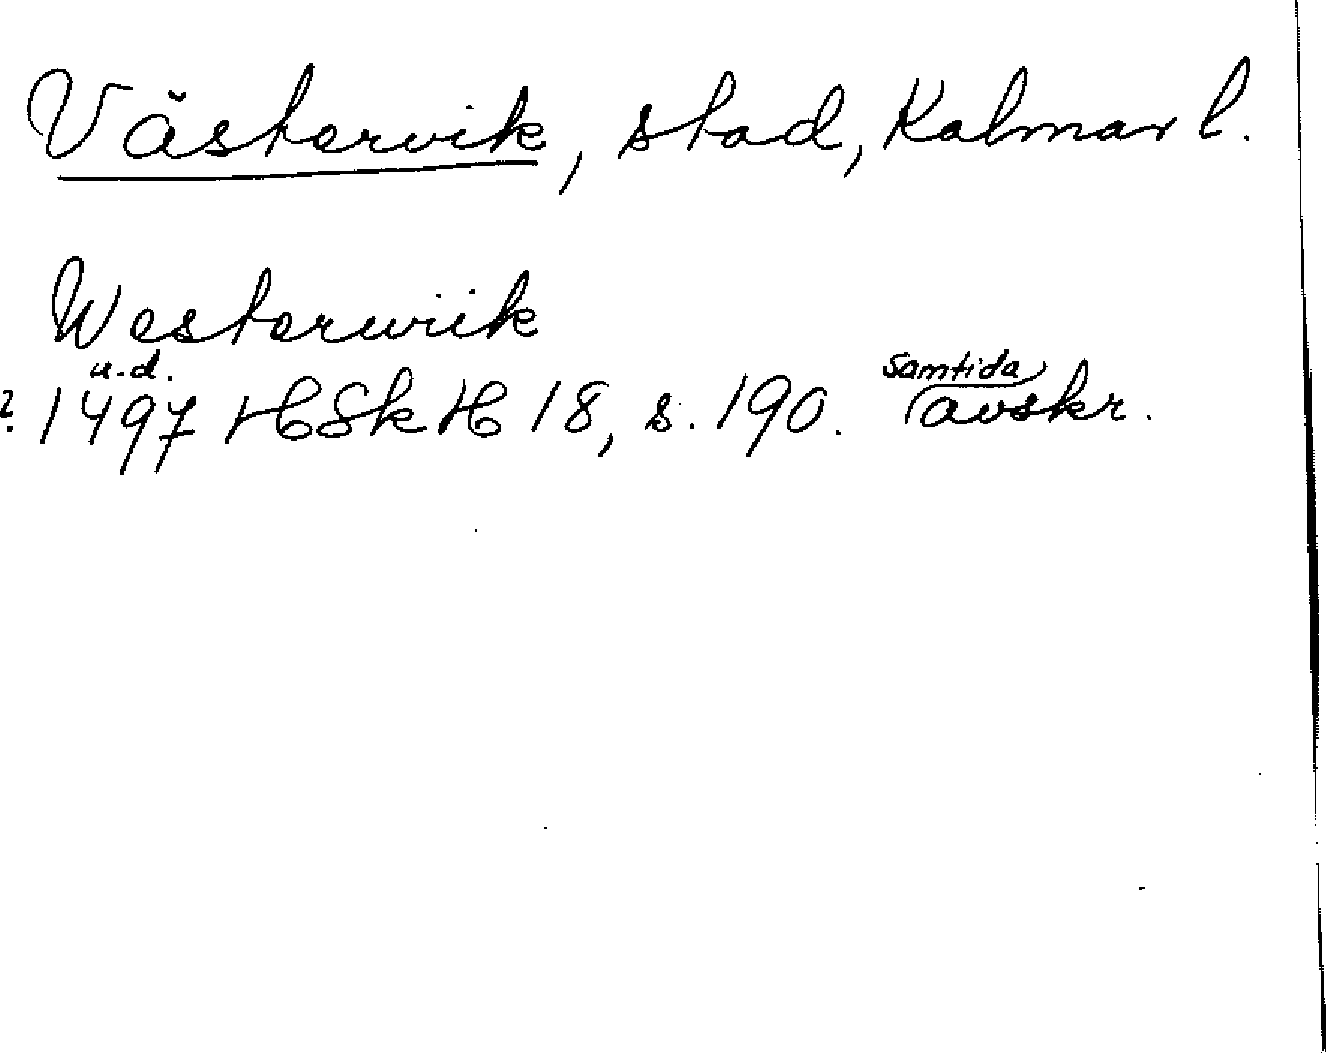 Västervik, stad, Kalmar l.
Westerwiik
u.d.
? 1497 HSkH 18, s. 190. samtida avskr.